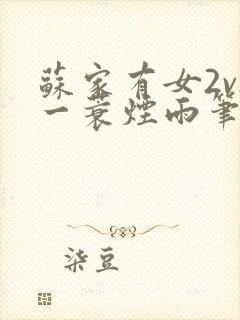 蘇家有女2v
一蓑煙雨筆
柒豆